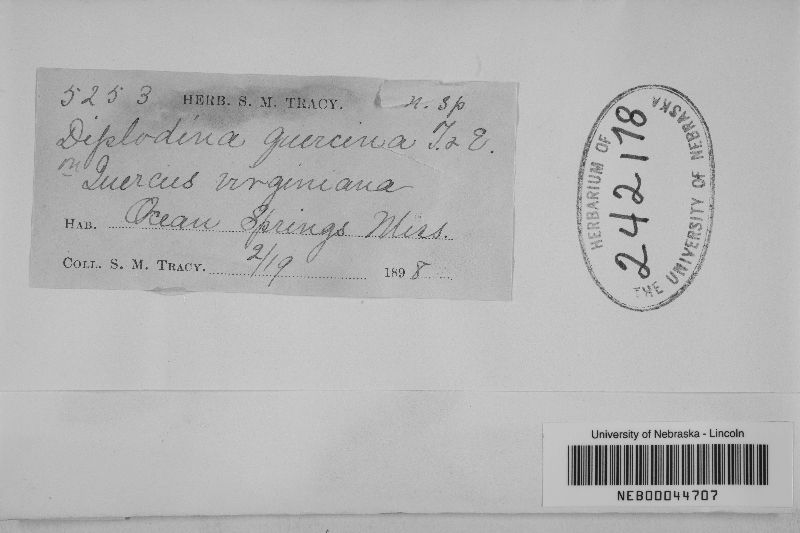 5253 HERB. S. M. TRACY. n. sp
Diplodina quercina T & E.
on Quercus virginiana
HAB. Ocean Springs Miss.
COLL. S. M. TRACY. 2/19 1898
HERBARIUM OF
242178
THE UNIVERSITY OF NEBRASKA
University of Nebraska - Lincoln
NEB00044707